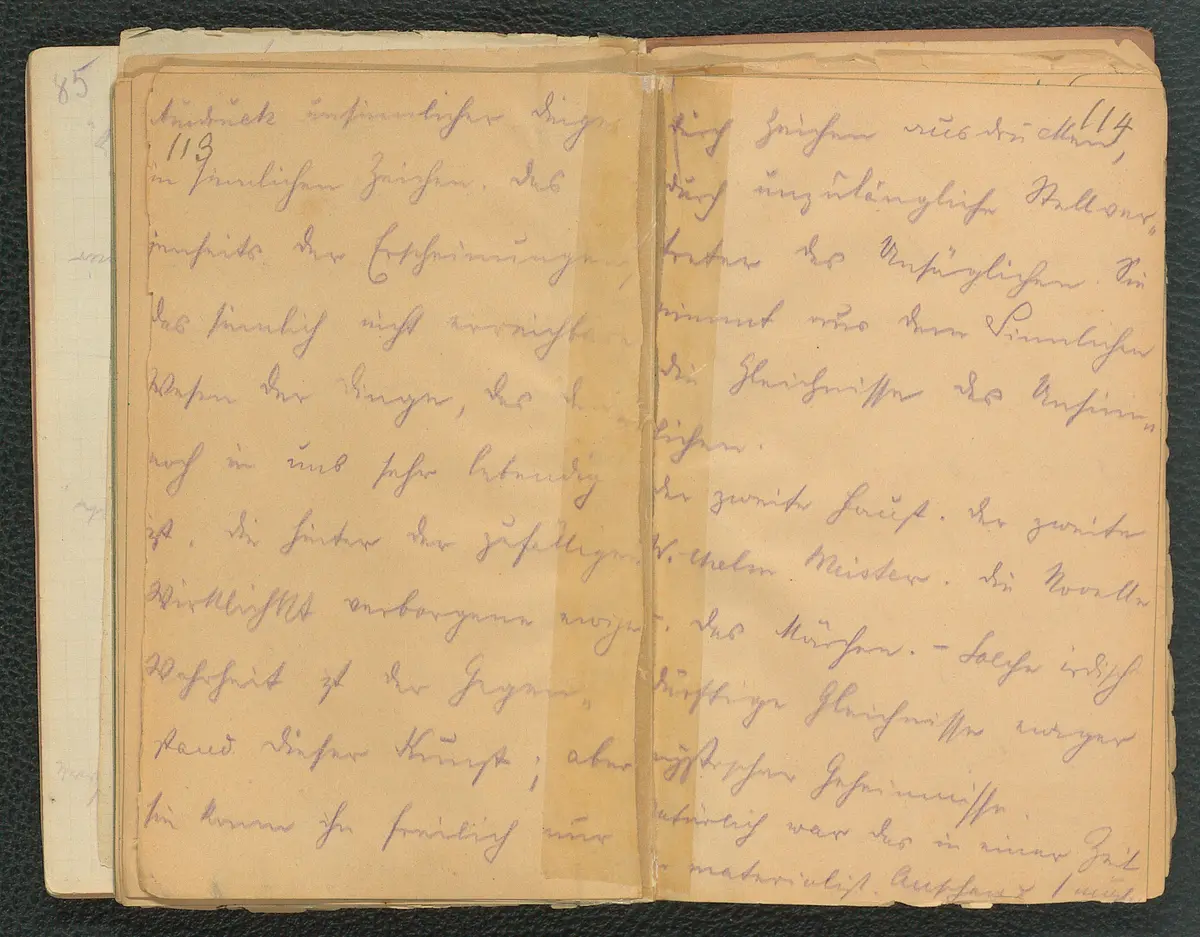 85
Ausdruck unsinnlicher Dinge
113
in sinnlichen Zeichen. Das
jenseits der Erscheinungen,
das sinnlich nicht erreichbare
Wesen der Dinge, das
noch in uns sehr lebendig
ist. Die hinter der zufälligen
Wirklichkt verborgene ewige
Wahrheit ist der Gegen„
stand dieser Kunst; aber
sie kann ihn freilich nur
114
durch Zeichen ausdrücken,
durch unzulängliche Stellver„
treter des Unsäglichen. Sie
nimmt aus dem Sinnlichen
die Gleichnisse des Unsinn„
lichen.
Der zweite Faust. Der zweite
Wilhelm Meister. Die Novelle
–. Das Märchen. – Solche irdisch
dürftige Gleichnisse ewiger
mystischer Geheimnisse.
Natürlich war das in einer Zeit
materialist.